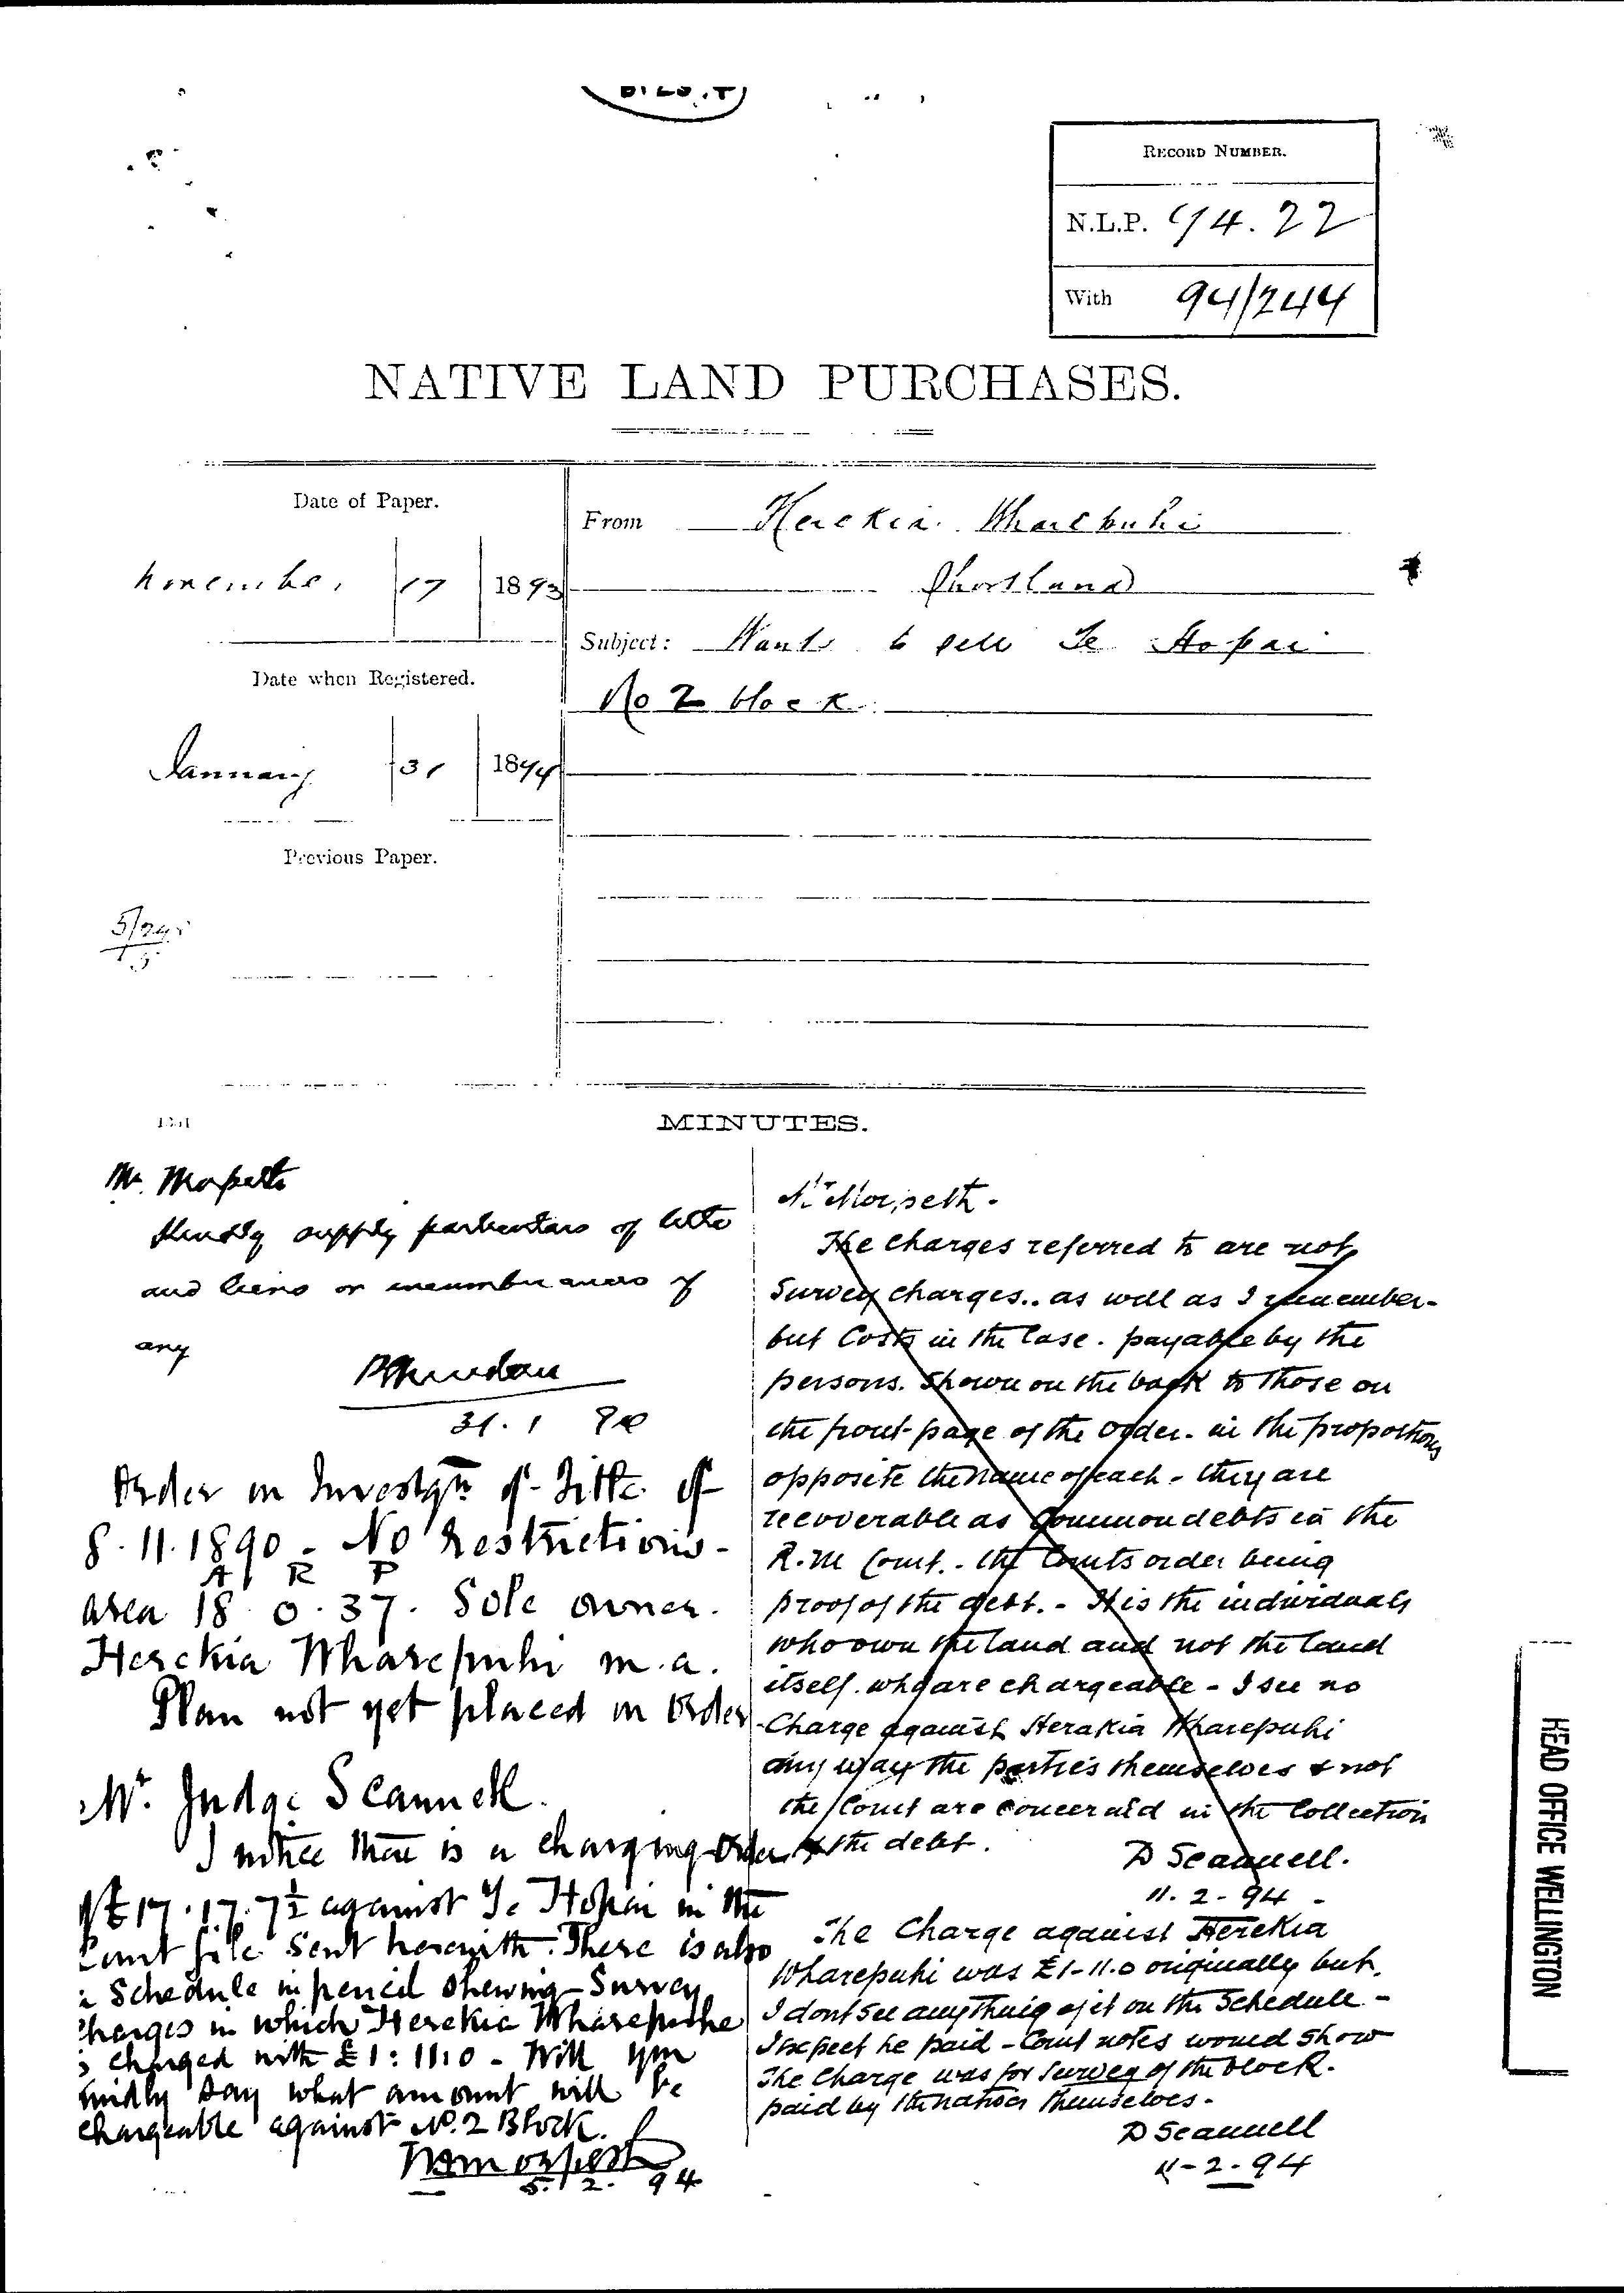 RECORD NUMBER.
N.L.P. 94.22
With 94/244
NATIVE LAND PURCHASES.
Date of Paper.
November 17 1893
Date when Registered.
January 31 1894
Previous Paper.
From Herekia Wharepuhi
Shortland
Subject: Wants to sell Te Hopai
No 2 block
MINUTES.
Mr. Morpeth
Kindly supply particulars of title
and liens or incumbrances if
any
31. 1 94
Order on Investgtn of Title of
8.11.1890 - No restrictions -
A R P
area 18. 0. 37. Sole owner.
Herekia Wharepuhi m.a.
Plan not yet placed on Order
Mr. Judge Scannell.
I notice there is a charging order
of £17.17.7½ against Te Hopai in the
Court file sent herewith. There is also
a Schedule in pencil shewing Survey
Charges in which Herekia Wharepuhi
is charged with £1:11:0 - Will you
kindly say what amount will be
chargeable against No. 2 Block.
5. 2. 94
Mr Morpeth -
The charges referred to are not
Survey charges.. as well as I remember -
but Costs in the Case. payable by the
persons. Shown on the back to those on
the front page of the order. in the proportions
opposite the name of each - they are
recoverable as Common debts in the
R.M Court. - the Courts order being
proof of the debt. - It is the individuals
who own the land and not the land
itself. who are chargeable - I see no
Charge against Herakia Wharepuhi
any way the parties themselves & not
the Court are concerned in the Collection
of the debt.
D Scannell.
11. 2 - 94 -
The Charge against Herekia
Wharepuhi was £1-11.0 originally but.
I dont see anything of it on the Schedule -
I expect he paid - Court notes would show
The Charge was for Survey of the block.
paid by the natives themselves -
D Scannell
11 - 2 - 94
HEAD OFFICE WELLINGTON